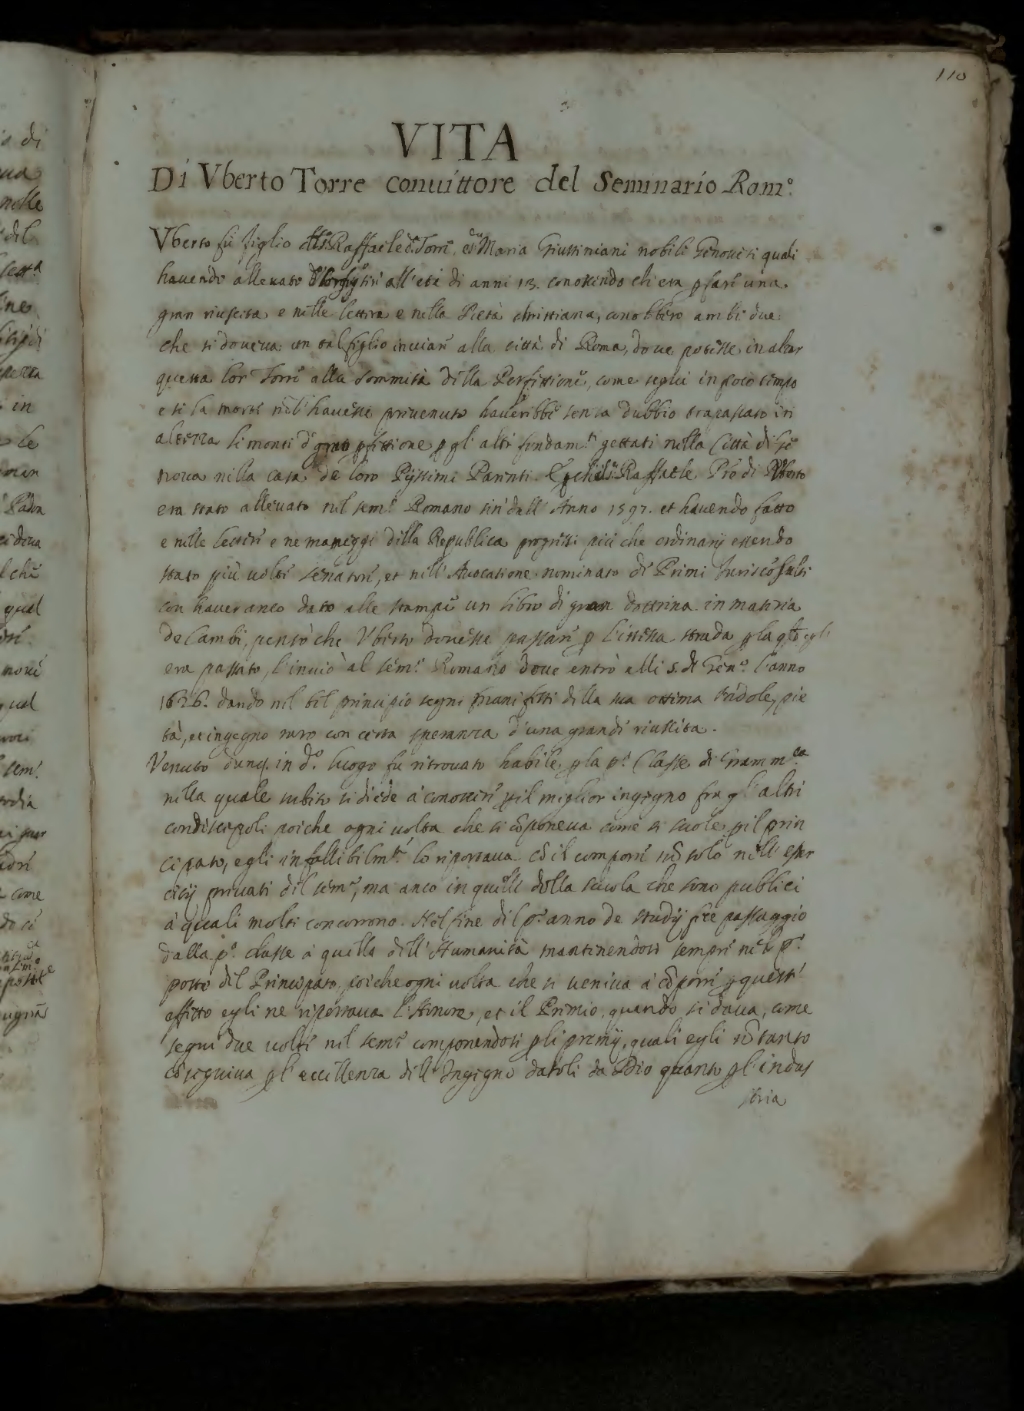 110
VITA
Di Vberto Torre conuittore del Seminario Rom.o
Vberto fù figlio Raffaele Torre, Maria Giustiniani nobili Genouesi quali
hauendo alleuato all'età di anni 13. conoscendo ch'era p fare una
gran riuscita e nelle lettere e nella Pietà christiana, conobbero ambi due
che si doueua un tal figlio inuiare alla città di Roma, doue potesse inalzar
questa lor Torre alla sommità della Perfettione, come seguì in poco tempo
e se la morte nol'hauesse preuenuto hauerebbe senza dubbio trapassato in
altezza li monti d gran pfettione p gli alti fondam.ti gettati nella Città di Ge
noua nella casa de loro Pijssimi Parenti. Raffaele Pre di Vberto
era stato alleuato nel sem.o Romano sin dall'Anno 1597. et hauendo fatto
e nelle lettere e ne maneggi della Republica progressi più che ordinarij essendo
stato più uolte senatore, et nell'Auocatione nominato de Primi
con hauer anco dato alle stampe un libro di gran dottrina in materia
de Cambi, pensò che Vberto douesse passare p l'istessa strada p la egli
era passato, l'inuiò al sem.o Romano doue entrò alli 5. di Gen.o l'anno
1626. dando nel bel principio segni manifesti della sua ottima Indole, pie
tà, et ingegno raro con certa speranza d'una grande riuscita.
Venuto dunq. in d.o luogo fu ritrouato habile p la p.a Classe di Gramm.ca
nella quale subito si diede à conoscere p il miglior ingegno fra gl'altri
condiscepoli poiche ogni uolta che si cōponeua come si suole p il prin
cipato, egli infallibilm.te lo riportaua cō il comporre nō solo nell'eser
citij priuati del sem.o, ma anco in quelli della scuola che sono publici
à quali molti concorrono. Nel fine del p.o anno de studij fece passaggio
dalla p.a classe à quella dell'Humanità mantenendosi sempre nel p.o
posto del Principato, poiche ogni uolta che si ueniua à cōporre p questo
effetto egli ne riportaua l'Honore, et il Premio, quando si daua, come
seguì due uolte nel sem.o componendosi p li premij, quali egli nō tanto
cōseguiua p l'eccellenza dell'Ingegno datoli da Dio quanto p l'indus
tria